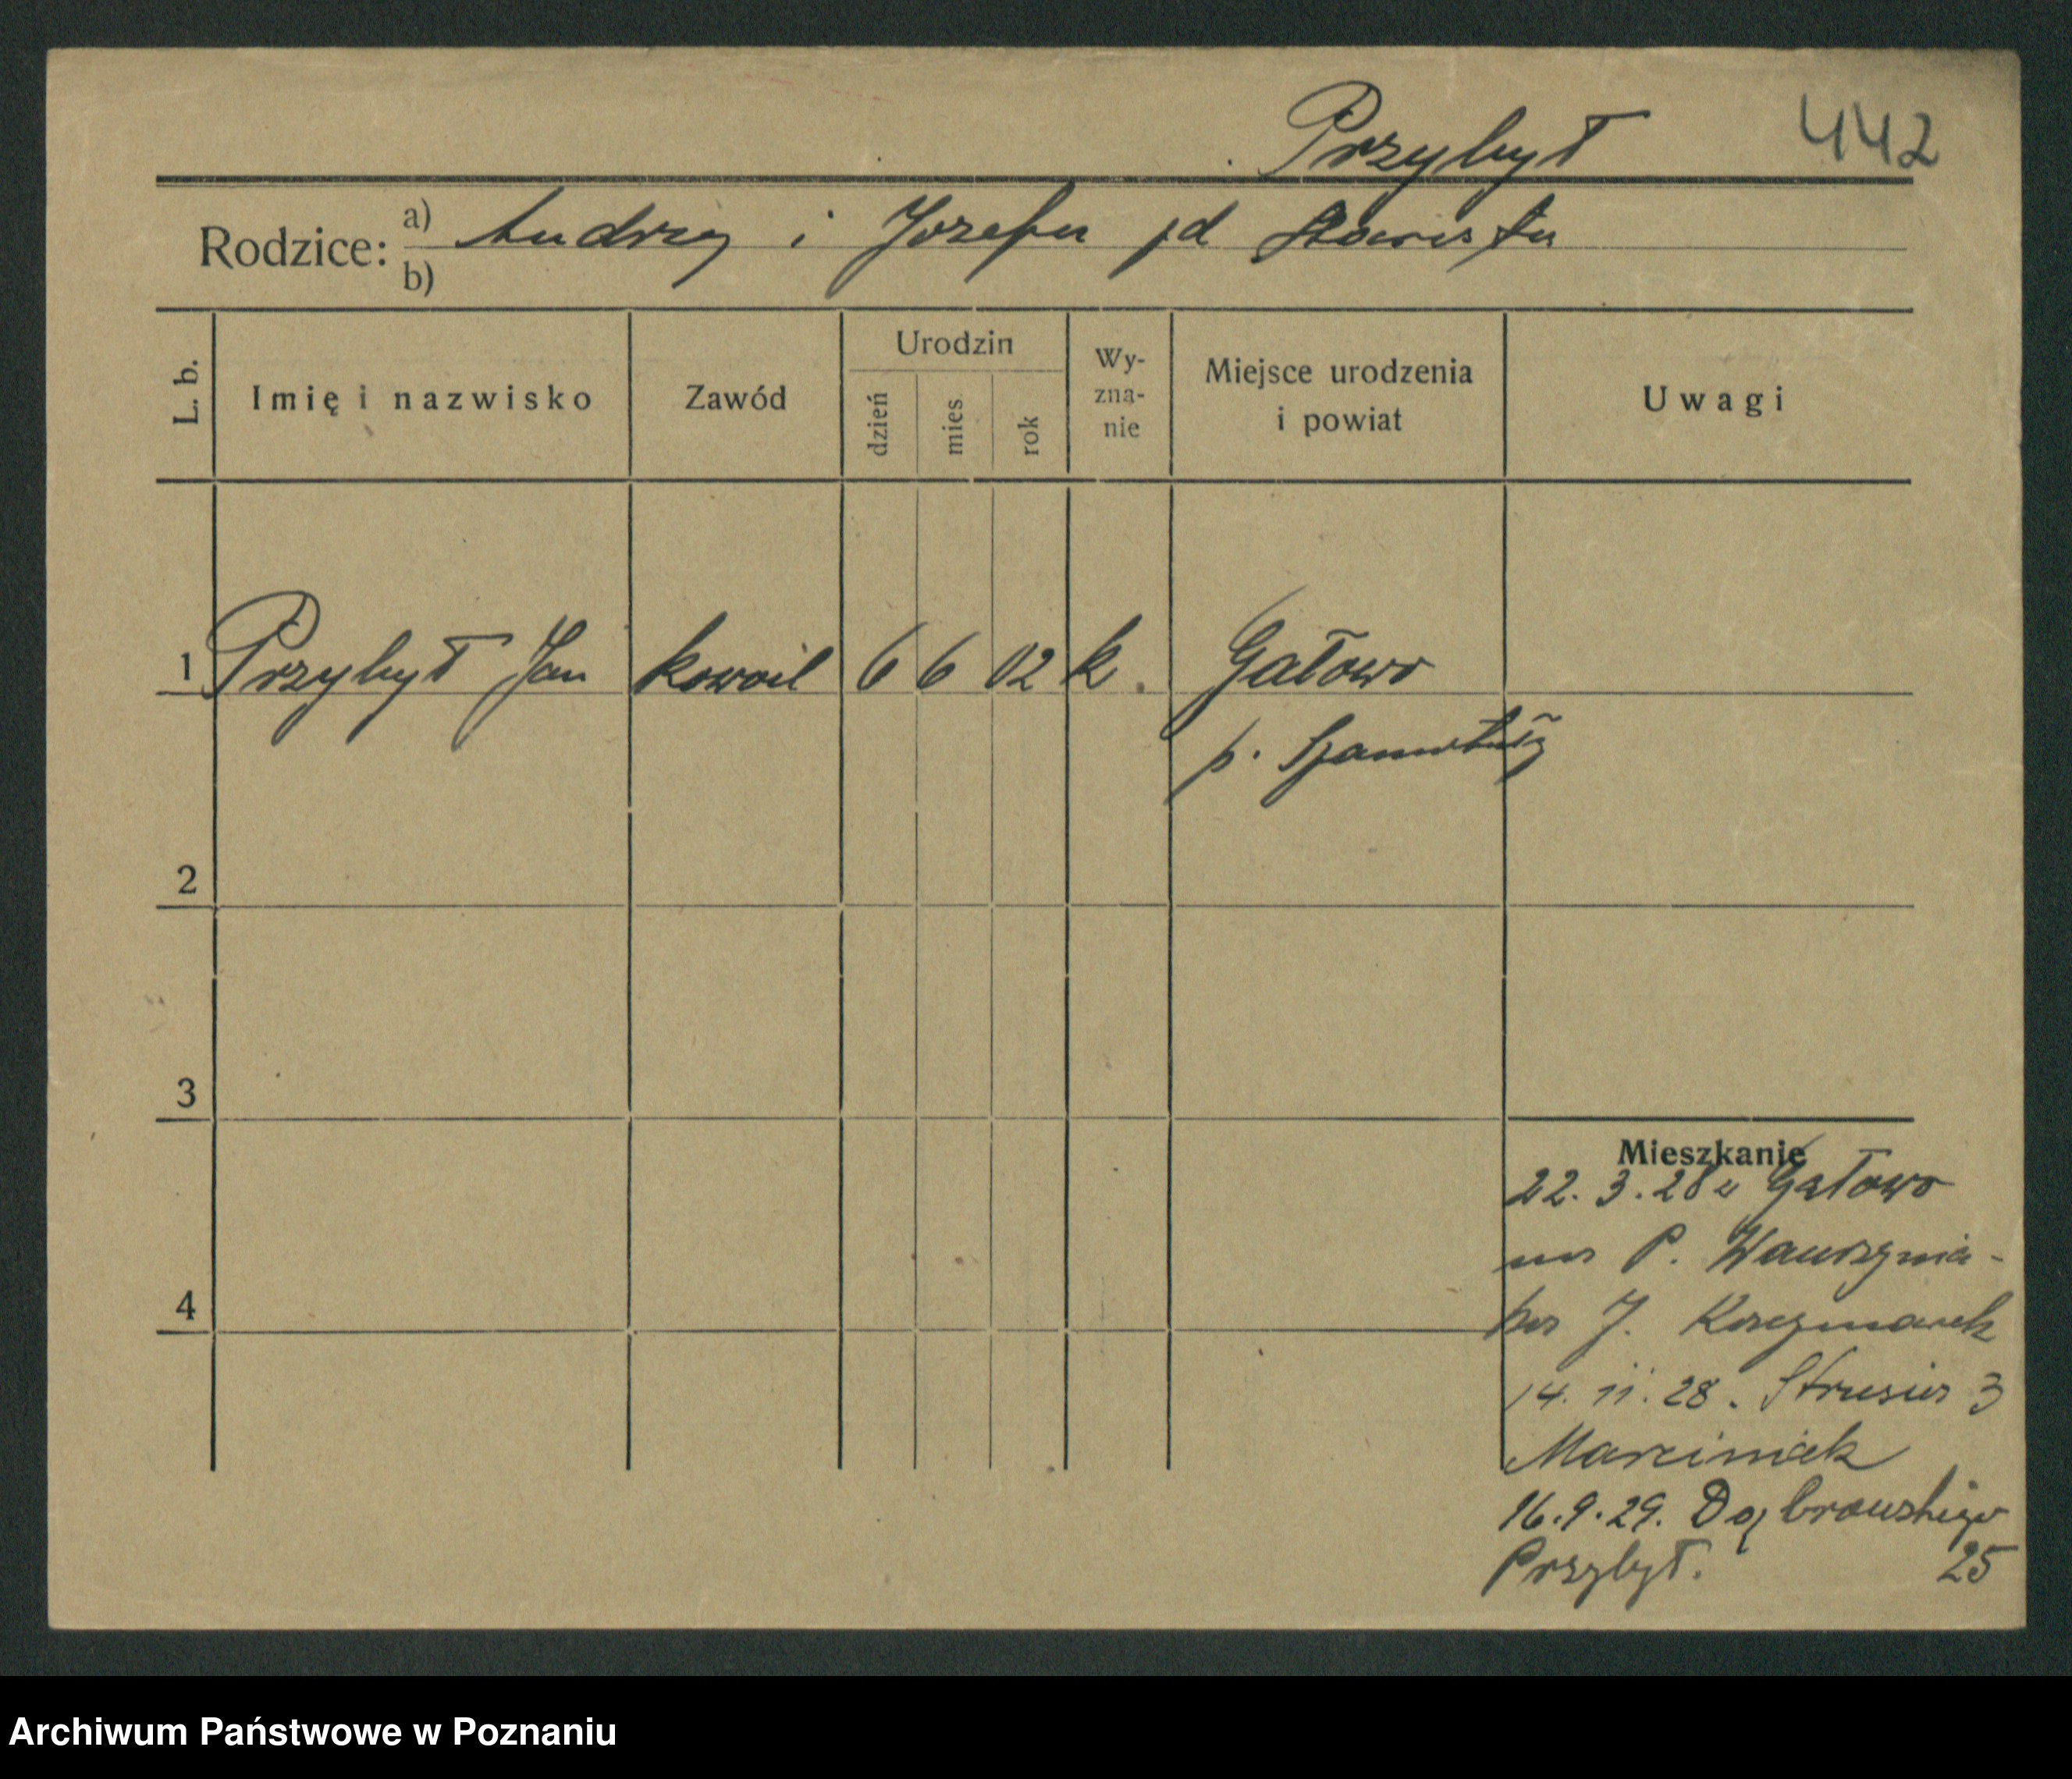 Przybył 442
Rodzice: a) Andrzej i Józefa
b)
L. b. Imię i nazwisko Zawód Urodzin dzień mies rok Wy-zna-nie Miejsce urodzenia i powiat Uwagi
1 Przybył Jan kowal 6 6 02 k. Gałowo
p. Szamotuły
2
3
Mieszkanie
22.3.28 z Gałowo
P. Wawrzynia-
4 ka J. Kaczmarek
14.11.28. Strusia 3
Marciniak
16.9.29. Dąbrowskiego
Przybył. 25
Archiwum Państwowe w Poznaniu